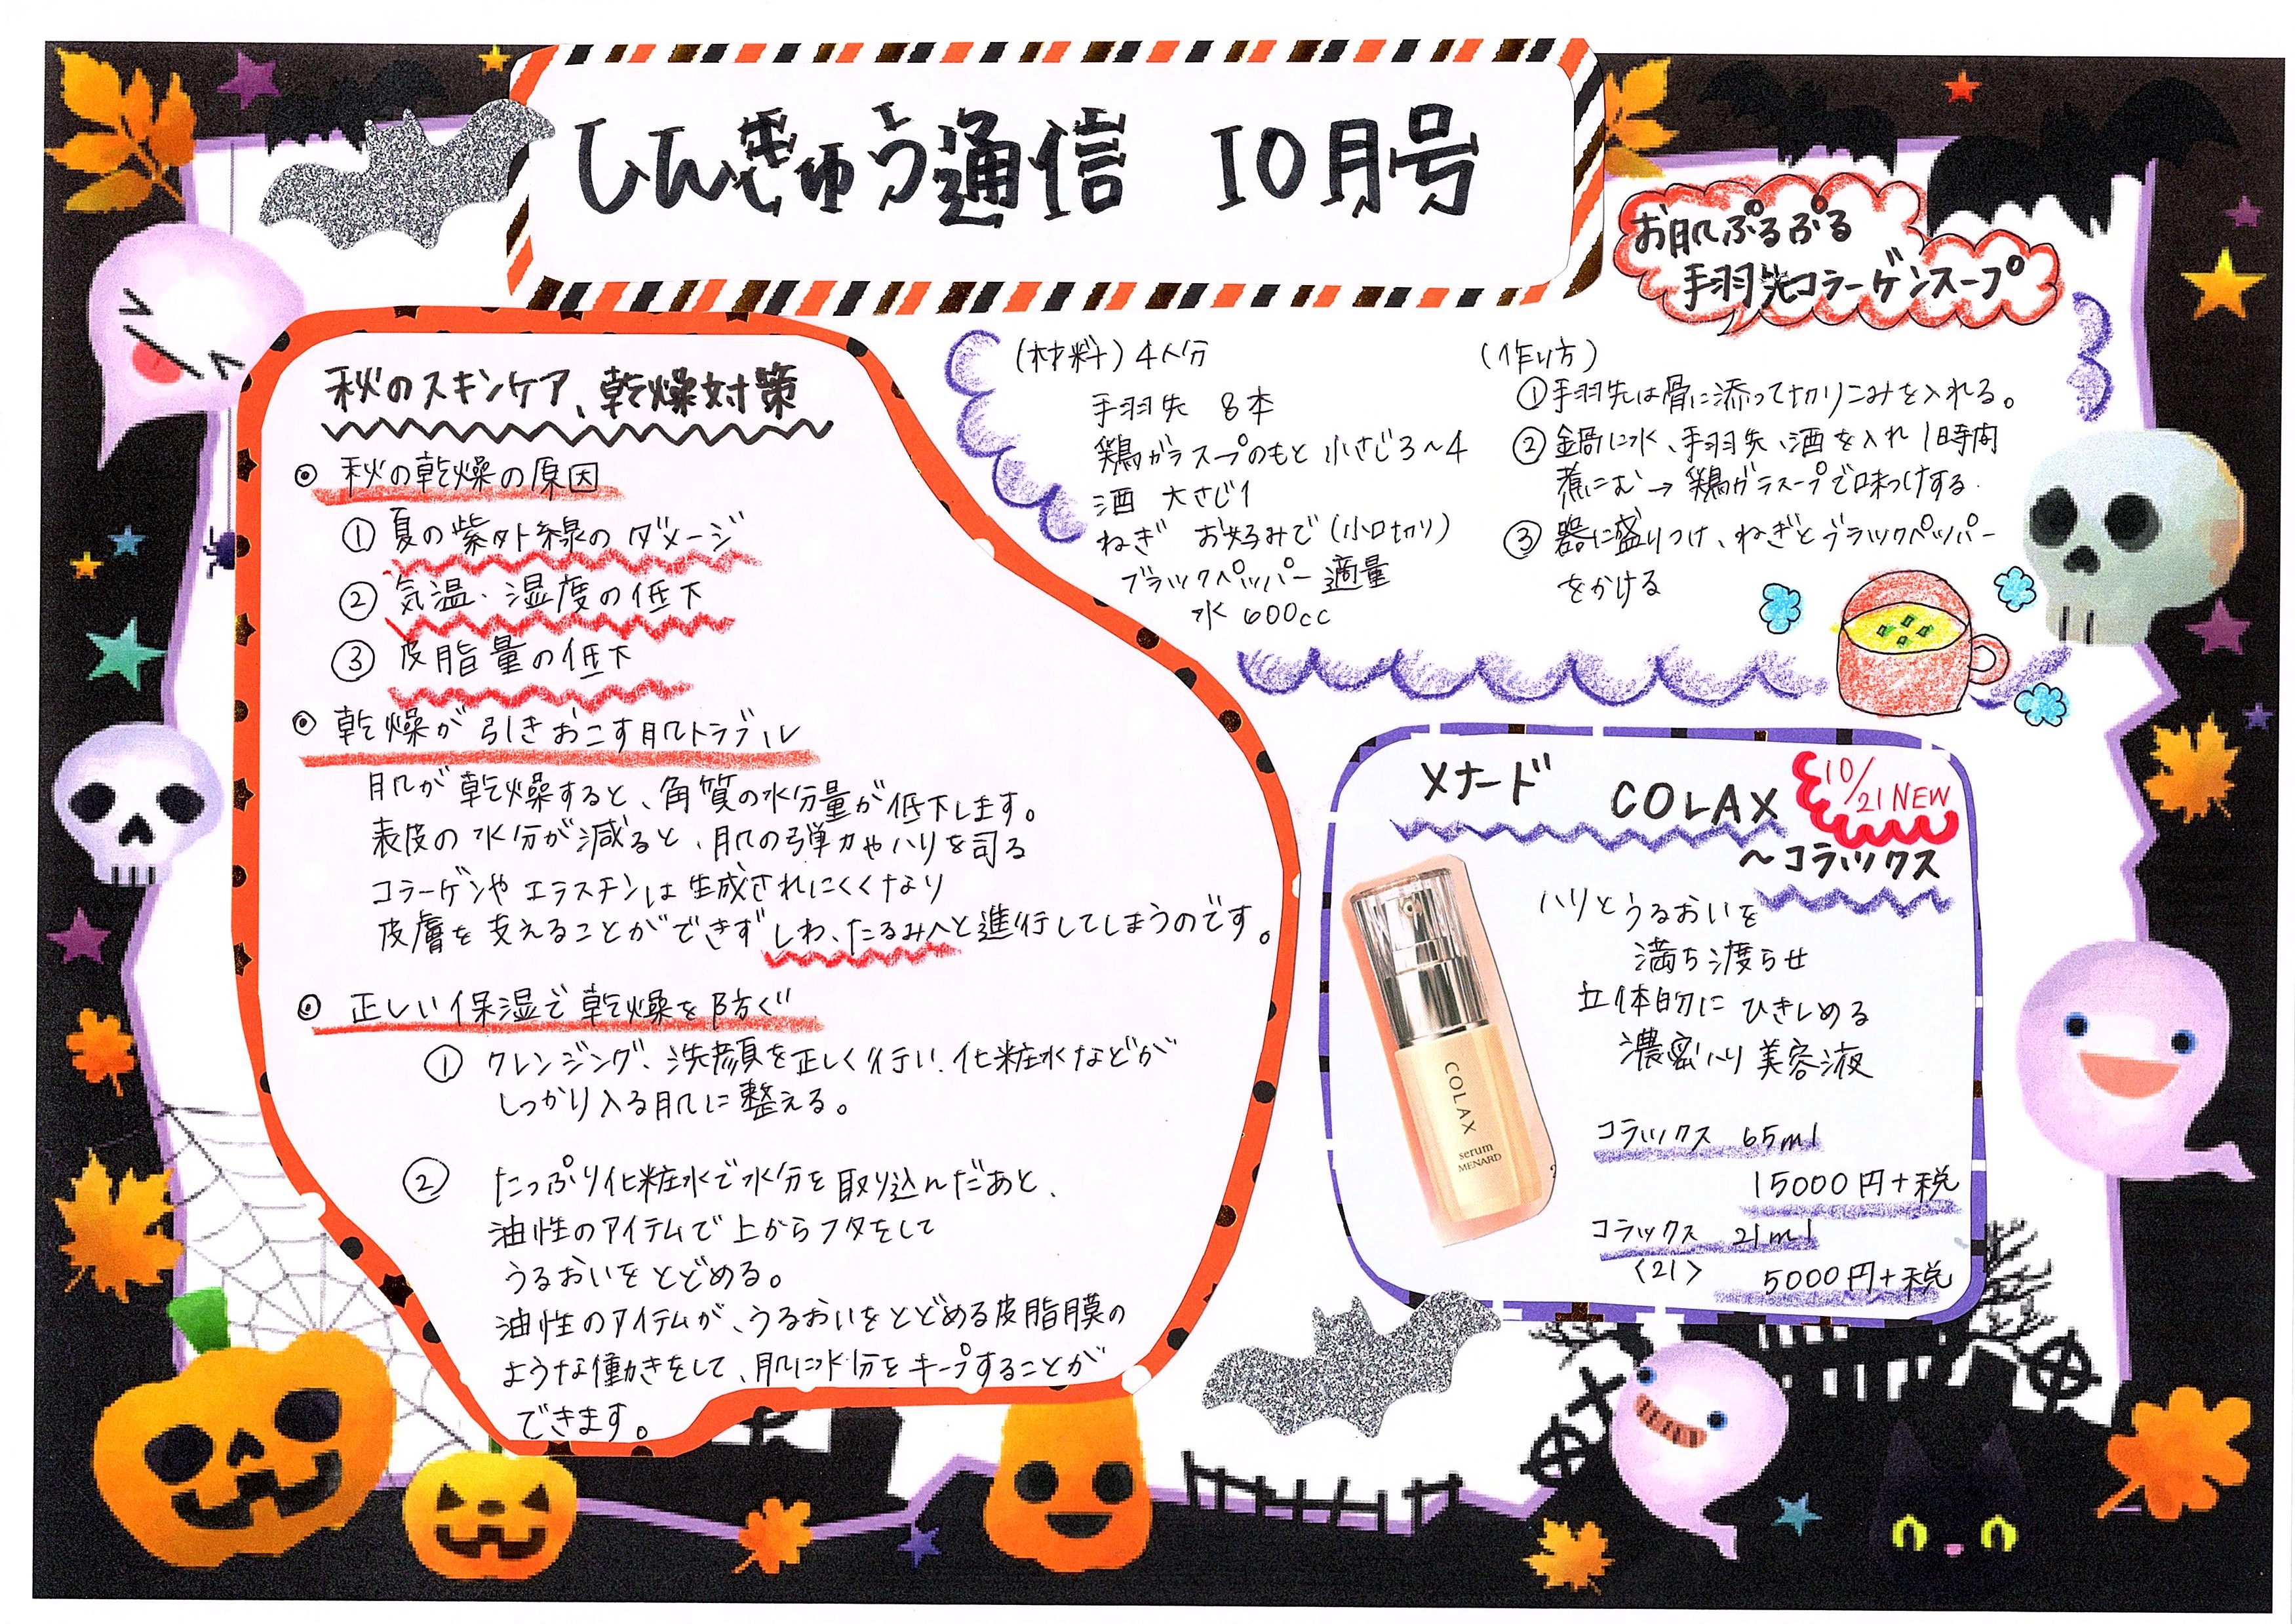 しんきゅう通信 10月号
秋のスキンケア、乾燥対策
◎ 秋の乾燥の原因
① 夏の紫外線のダメージ
② 気温、湿度の低下
③ 皮脂量の低下
◎ 乾燥が引きおこす肌トラブル
肌が乾燥すると、角質の水分量が低下します。
表皮の水分が減ると、肌の弾力やハリを司る
コラーゲンやエラスチンは生成されにくくなり
皮膚を支えることができずしわ、たるみへと進行してしまうのです。
◎ 正しい保湿で乾燥を防ぐ
① クレンジング、洗顔を正しく行い、化粧水などが
しっかり入る肌に整える。
② たっぷり化粧水で水分を取り込んだあと、
油性のアイテムで上からフタをして
うるおいをとどめる。
油性のアイテムが、うるおいをとどめる皮脂膜の
ような働きをして、肌に水分をキープすることが
できます。
お肌ぷるぷる
手羽先コラーゲンスープ
(材料) 4人分
手羽先 8本
鶏ガラスープのもと 小さじ3~4
酒 大さじ1
ねぎ お好みで(小口切り)
ブラックペッパー 適量
水 600cc
(作り方)
①手羽先は骨に添って切りこみを入れる。
②鍋に水、手羽先、酒を入れ1時間
煮こむ→鶏ガラスープで味つけする。
③器に盛りつけ、ねぎとブラックペッパー
をかける
メナード COLAX
10/21 NEW
~コラックス
ハリとうるおいを
満ち渡らせ
立体的にひきしめる
濃密ハリ美容液
COLAX
serum
MENARD
コラックス 65ml
15000円+税
コラックス 21ml
<21>
5000円+税